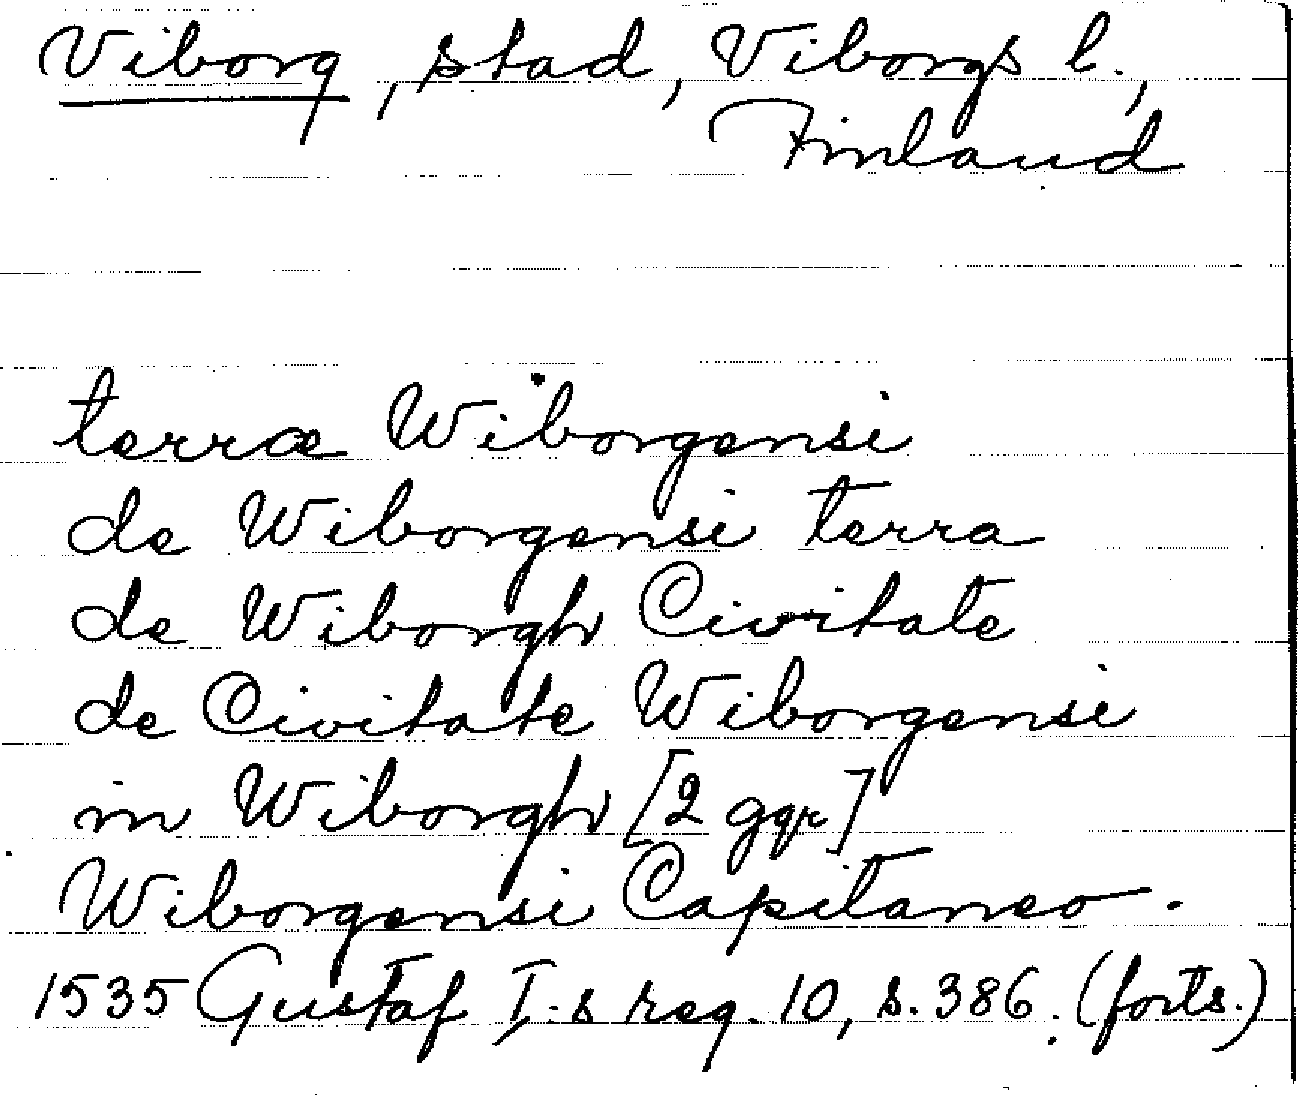 Viborg, stad, Viborgs l.,
Finland
terræ Wiborgensi
de Wiborgensi terra
de Wiborgh Civitate
de Civitate Wiborgensi
in Wiborgh [2 ggr]
Wiborgensi Capitaneo.
1535 Gustaf I:s reg. 10, s. 386. (forts.)